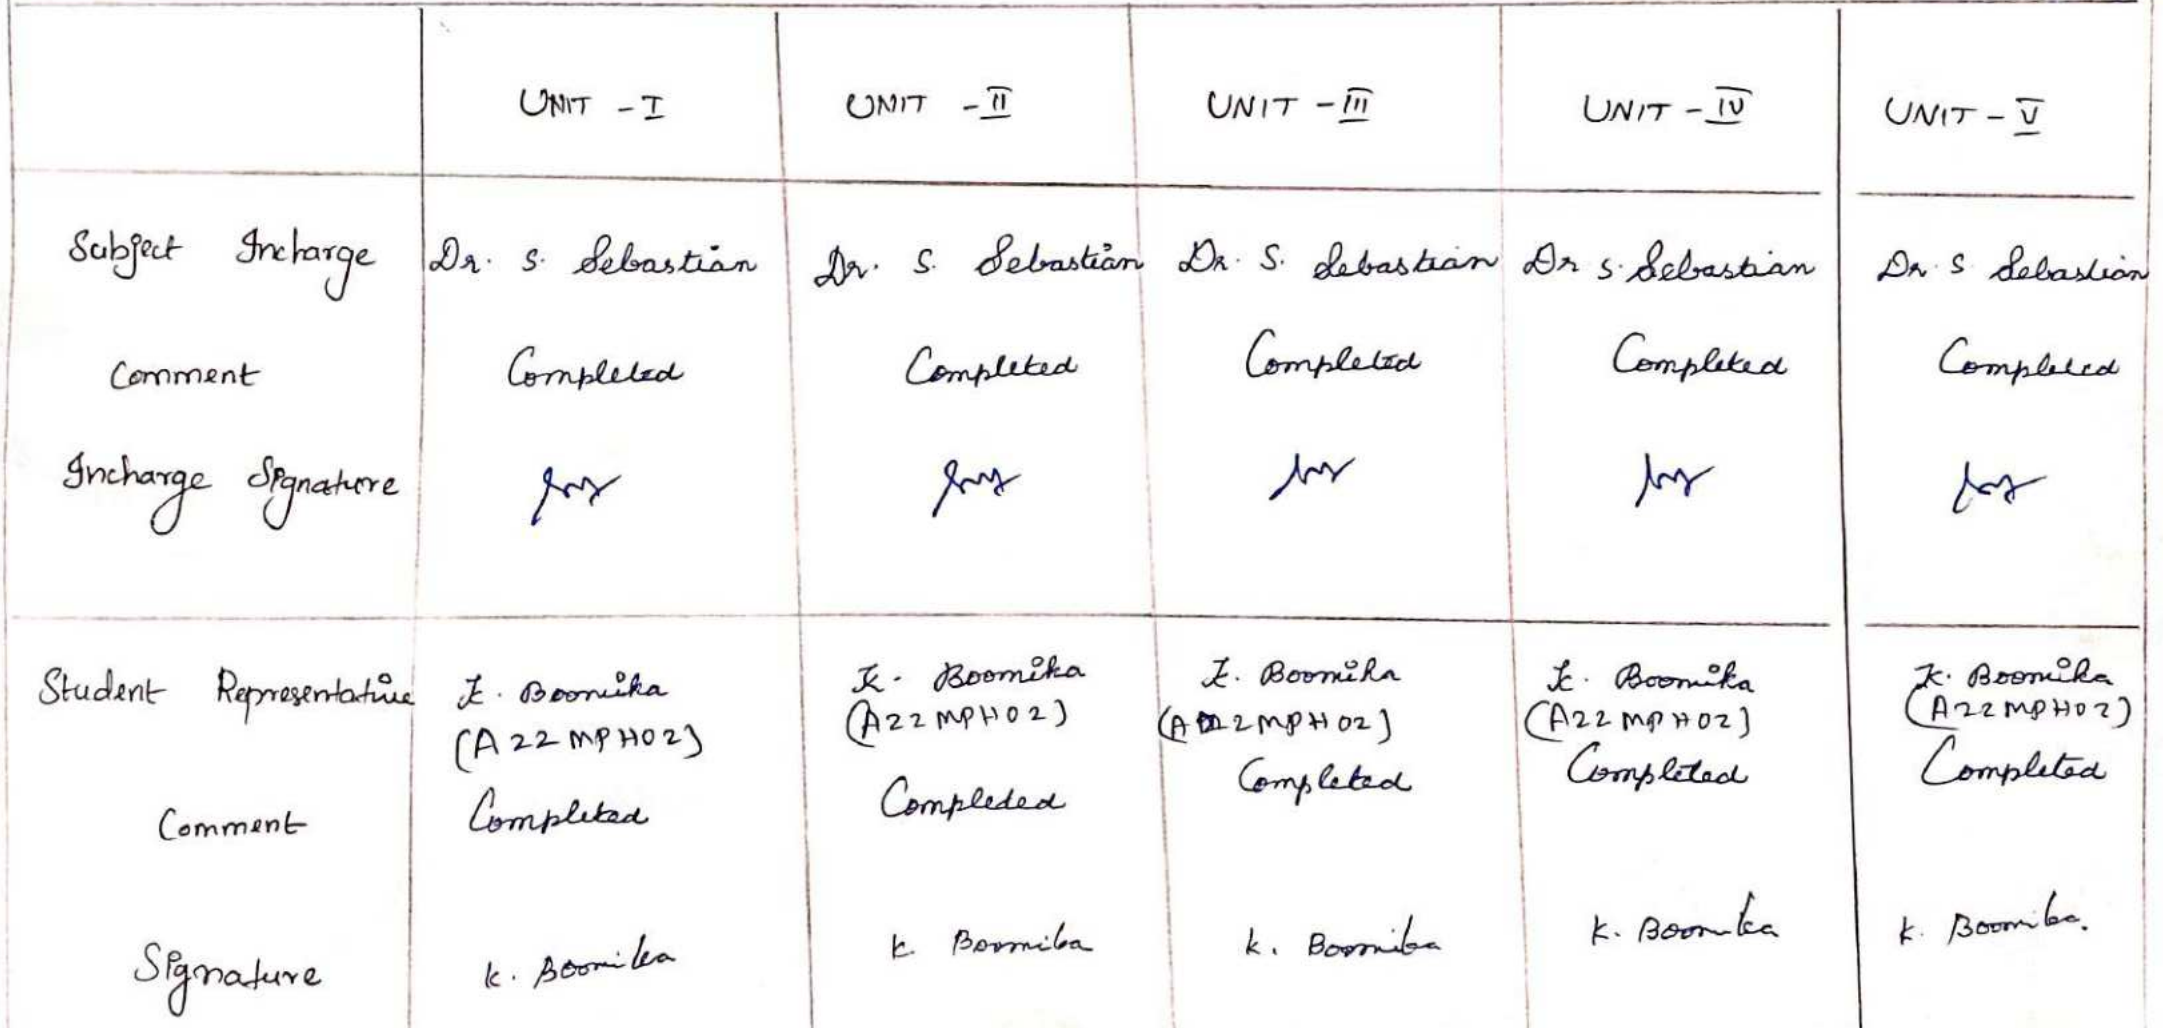 UNIT - I UNIT - II UNIT - III UNIT - IV UNIT - V
Subject Incharge Dr. S. Sebastian Dr. S. Sebastian Dr. S. Sebastian Dr S. Sebastian Dr. S Sebastian
Comment Completed Completed Completed Completed Completed
Incharge Signature
Student Representative K. Boomika K. Boomika K. Boomika K. Boomika K. Boomika
(A22MPH02) (A22MPH02) (A22MPH02) (A22MPH02) (A22MPH02)
Comment Completed Completed Completed Completed Completed
Signature K. Boomika K. Boomika K. Boomika K. Boomika K. Boomika.